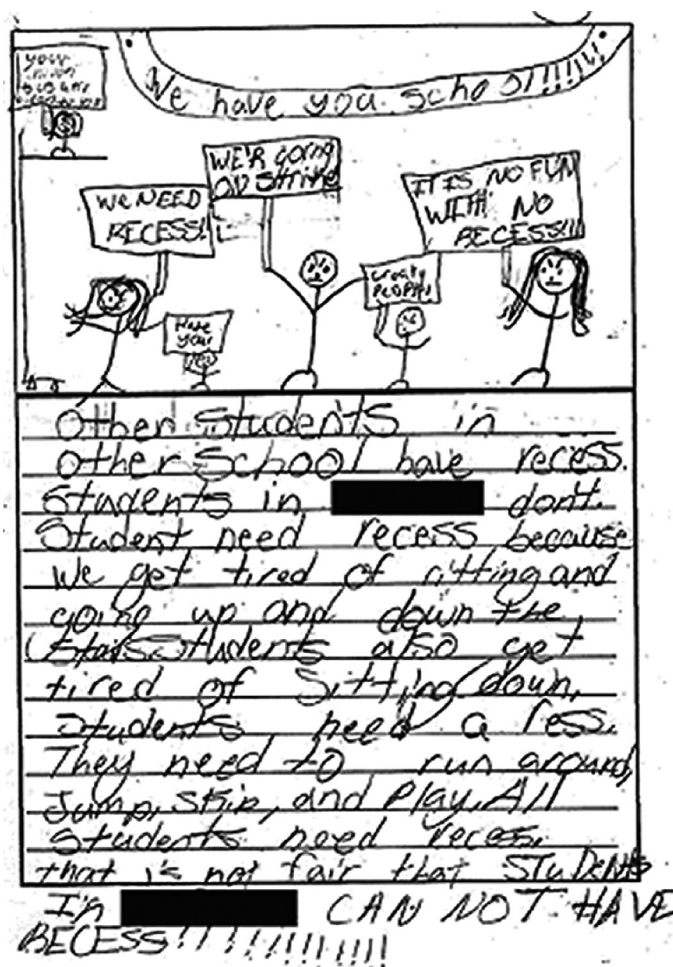 We have you school!!!!!
your
WE NEED
RECESS!
WE'R going
ON Strike
IT IS NO FUN
WITH NO
RECESS!!!
Have
your
Other Students in
other School have recess.
Students in don't.
Student need recess because
We get tired of sitting and
going up and down the
Stairs. Students also get
tired of Sitting down,
Students need a ress.
They need to run around,
Jump, Skip, and Play. All
Students need recess.
that is not fair that STUDENTS
In CAN NOT HAVE
RECESS!!!!!!!!!!!!